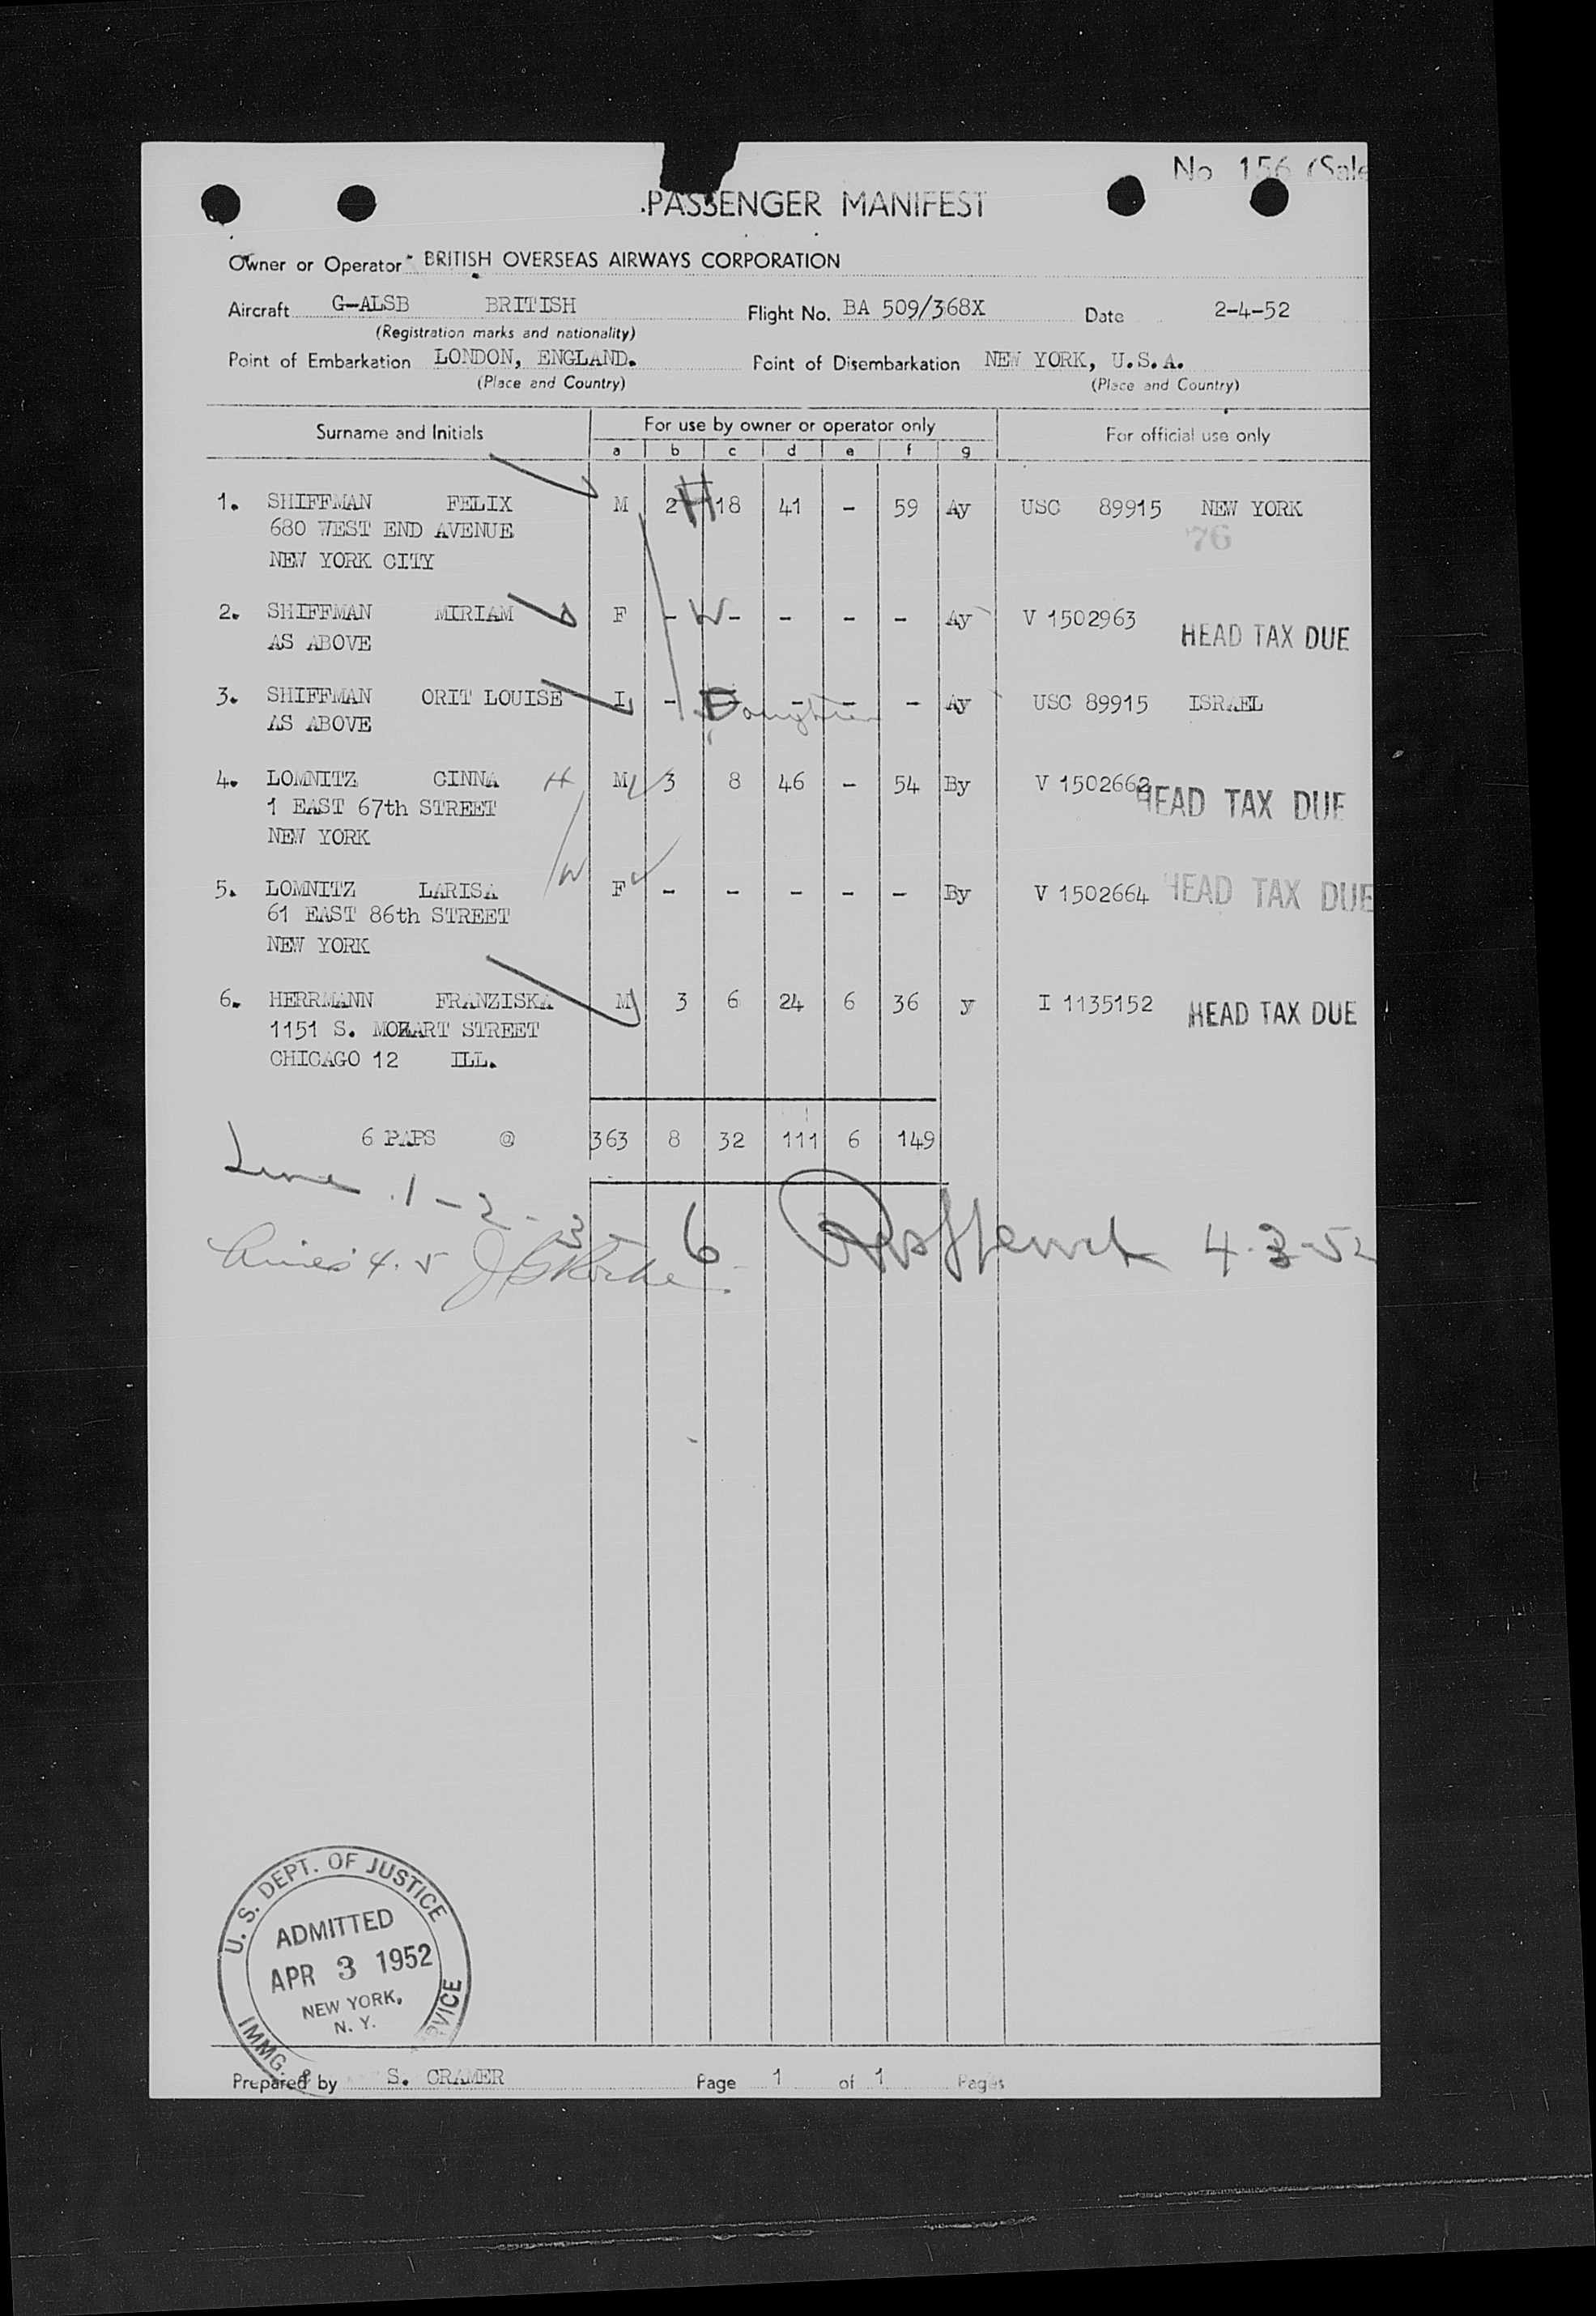 No 156 (Sale
PASSENGER MANIFEST
Owner or Operator BRITISH OVERSEAS AIRWAYS CORPORATION
Aircraft G-ALSB BRITISH Flight No. BA 509/368X Date 2-4-52
(Registration marks and nationality)
Point of Embarkation LONDON, ENGLAND. Point of Disembarkation NEW YORK, U.S.A.
(Place and Country) (Place and Country)
Surname and Initials For use by owner or operator only For official use only
a b c d e f g
1. SHIFFMAN FELIX M 2 H 18 41 - 59 Ay USC 89915 NEW YORK
680 WEST END AVENUE 76
NEW YORK CITY
2. SHIFFMAN MIRIAM F - W - - - - Ay V 1502963
AS ABOVE HEAD TAX DUE
3. SHIFFMAN ORIT LOUISE I - Daughter - - - Ay USC 89915 ISRAEL
AS ABOVE
4. LOMNITZ CINNA H M 3 8 46 - 54 By V 1502662 HEAD TAX DUE
1 EAST 67th STREET
NEW YORK
5. LOMNITZ LARISA W F - - - - - By V 1502664 HEAD TAX DUE
61 EAST 86th STREET
NEW YORK
6. HERRMANN FRANZISKA M 3 6 24 6 36 y I 1135152 HEAD TAX DUE
1151 S. MOZART STREET
CHICAGO 12 ILL.
6 PAPS @ 363 8 32 111 6 149
Line 1-2-3- 6 4-3-52
Lines 4.5
U. S. DEPT. OF JUSTICE
ADMITTED
APR 3 1952
NEW YORK,
N. Y.
IMMG. & RVICE
Prepared by S. CRAMER Page 1 of 1 Pages